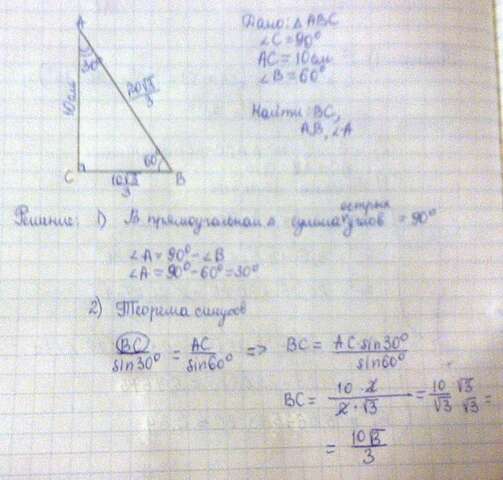 A
30°
10см
20√3/3
60°
C
10√3/3
B
Дано: ΔABC
∠C=90°
AC=10см
∠B=60°
Найти: BC,
AB, ∠A
Решение: 1) В прямоугольном Δ сумма острых углов = 90°
∠A=90°-∠B
∠A=90°-60°=30°
2) Теорема синусов
BC/sin30° = AC/sin60° => BC = AC sin30°/sin60°
BC = 10·2/2·√3 = 10/√3 √3/√3 =
= 10√3/3